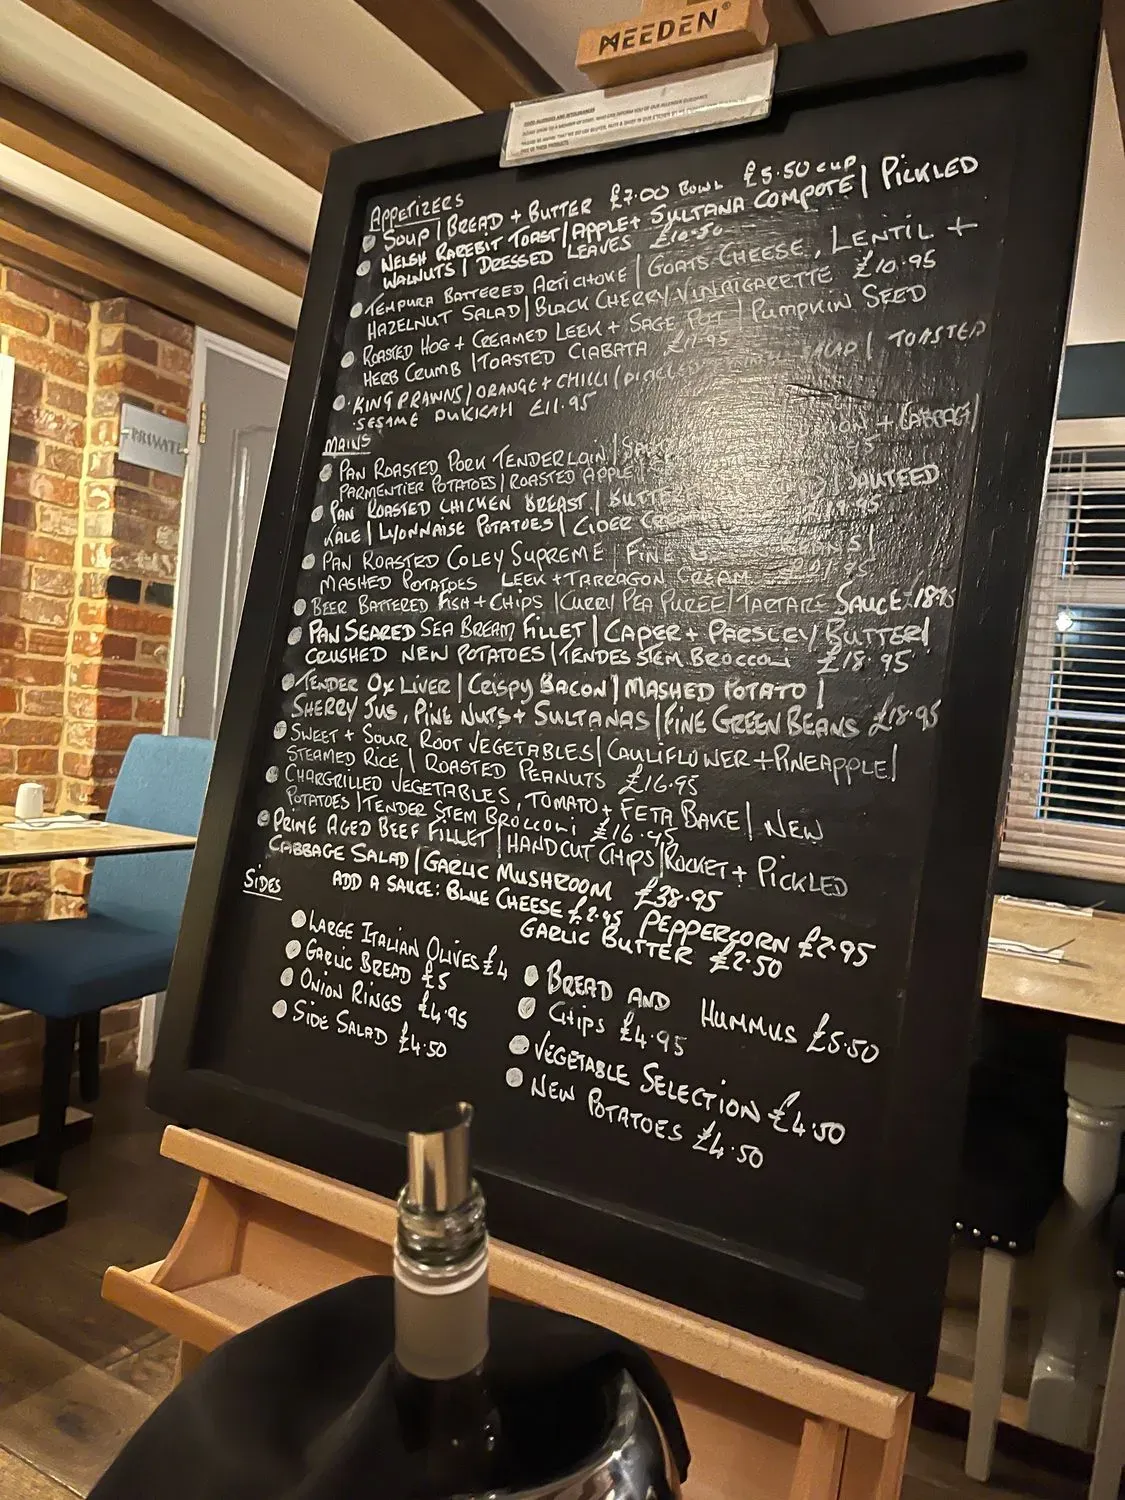 MEEDEN®
FOOD ALLERGIES AND INTOLERANCES
APPETIZERS
SOUP | BREAD + BUTTER £7.00 BOWL £5.50 CUP
WELSH RAREBIT TOAST | APPLE + SULTANA COMPOTE | PICKLED
WALNUTS | DRESSED LEAVES £10.50
TEMPURA BATTERED ARTICHOKE | GOATS CHEESE, LENTIL +
HAZELNUT SALAD | BLACK CHERRY VINAIGARETTE £10.95
ROASTED HOG + CREAMED LEEK + SAGE POT | PUMPKIN SEED
HERB CRUMB | TOASTED CIABATA £11.95
KING PRAWNS | ORANGE + CHILLI | PICKLED SALAD | TOASTED
SESAME DUKKAH £11.95
PRIVATE
MAINS
PAN ROASTED PORK TENDERLOIN | + CABBAGE |
PARMENTIER POTATOES | ROASTED APPLE
PAN ROASTED CHICKEN BREAST | SAUTEED
KALE | LYONNAISE POTATOES | CIDER £19.95
PAN ROASTED COLEY SUPREME | FINE BEANS |
MASHED POTATOES LEEK + TARRAGON CREAM
BEER BATTERED FISH + CHIPS | CURRY PEA PUREE | TARTARE SAUCE 18.95
PAN SEARED SEA BREAM FILLET | CAPER + PARSLEY BUTTER |
CRUSHED NEW POTATOES | TENDES STEM BROCCOLI £18.95
TENDER OX LIVER | CRISPY BACON | MASHED POTATO |
SHERRY JUS, PINE NUTS + SULTANAS | FINE GREEN BEANS £18.95
SWEET + SOUR ROOT VEGETABLES | CAULIFLOWER + PINEAPPLE |
STEAMED RICE | ROASTED PEANUTS £16.95
CHARGRILLED VEGETABLES, TOMATO + FETA BAKE | NEW
POTATOES | TENDER STEM BROCCOLI £16.95
PRIME AGED BEEF FILLET | HANDCUT CHIPS | ROCKET + PICKLED
CABBAGE SALAD | GARLIC MUSHROOM £38.95
ADD A SAUCE: BLUE CHEESE £2.95 PEPPERCORN £2.95
GARLIC BUTTER £2.50
SIDES
LARGE ITALIAN OLIVES £4
GARLIC BREAD £5
ONION RINGS £4.95
SIDE SALAD £4.50
BREAD AND HUMMUS £5.50
CHIPS £4.95
VEGETABLE SELECTION £4.50
NEW POTATOES £4.50